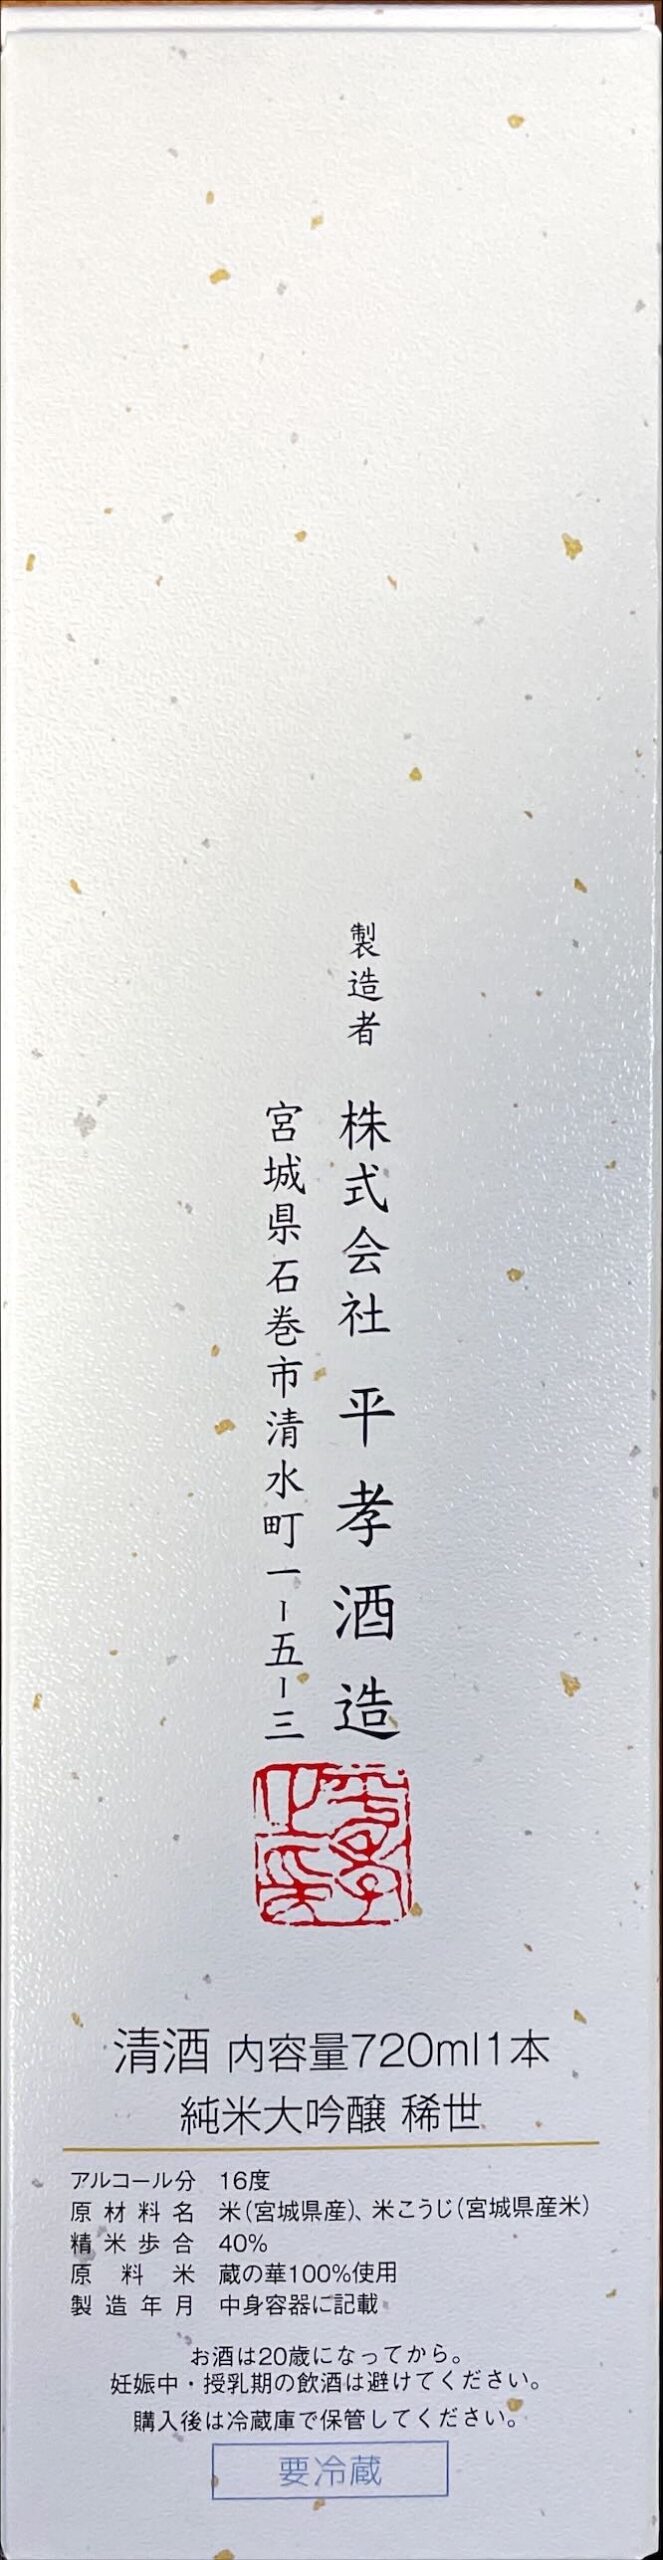 製造者 株式会社 平孝酒造
宮城県石巻市清水町一-五-三
清酒 内容量720ml1本
純米大吟醸 稀世
アルコール分 16度
原材料名 米(宮城県産)、米こうじ(宮城県産米)
精米歩合 40%
原料米 蔵の華100%使用
製造年月 中身容器に記載
お酒は20歳になってから。
妊娠中・授乳期の飲酒は避けてください。
購入後は冷蔵庫で保管してください。
要冷蔵